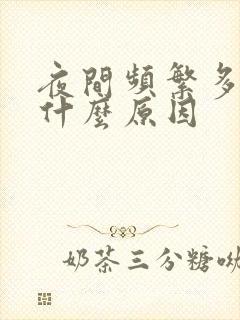 夜間頻繁多
什麼原因
奶茶三分糖呦